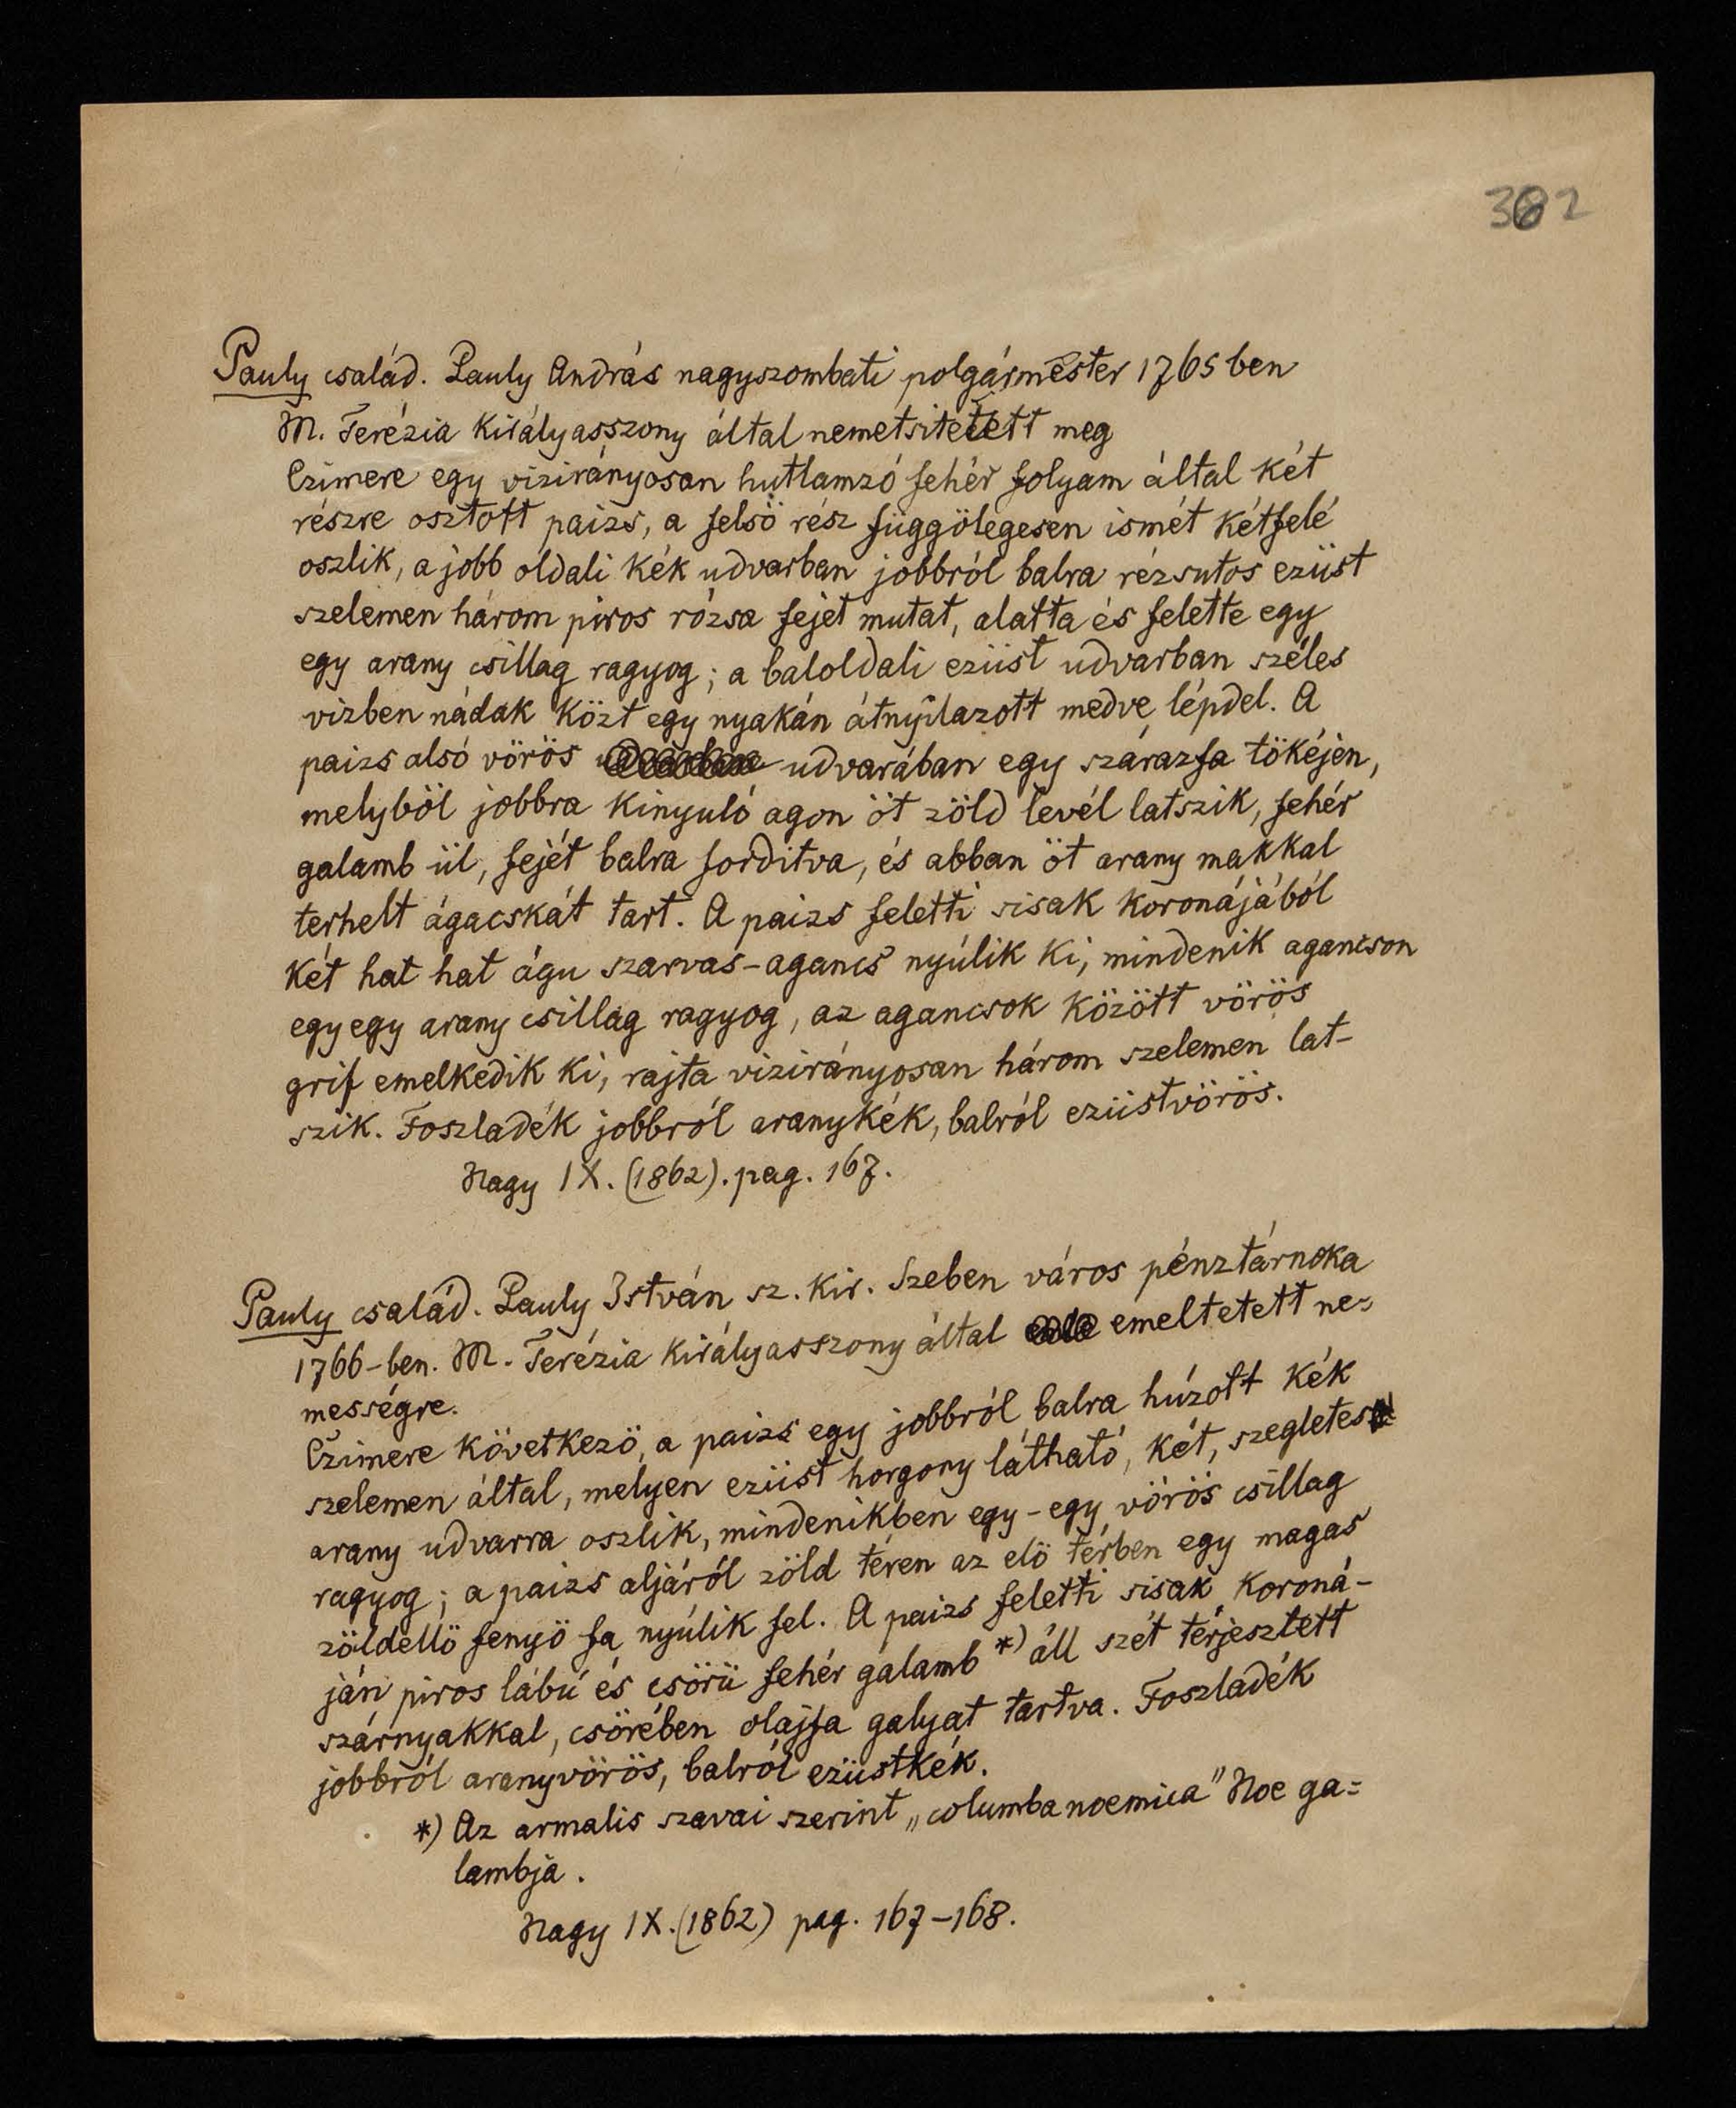 382
Pauly család. Pauly András nagyszombati polgármester 1765 ben
M. Terézia Királyasszony által nemetsitetett meg
Czimere egy vizirányosan hutlamzó fehér folyam által két
részre osztott paizs, a felsö rész függölegesen ismét kétfelé
oszlik, a jobb oldali kék udvarban jobbról balra rézsutos ezüst
szelemen három piros rózsa fejet mutat, alatta és felette egy
egy arany csillag ragyog; a baloldali ezüst udvarban széles
vizben nádak közt egy nyakán átnyilazott medve lépdel. A
paizs alsó vörös udvarában egy szárazfa tökéjén,
melyböl jobbra kinyuló agon öt zöld levél latszik, fehér
galamb ül, fejét balra forditva, és abban öt arany makkal
terhelt ágacskát tart. A paizs feletti sisak koronájából
két hat hat águ szarvas-agancs nyúlik ki, mindenik agancson
egy egy arany csillag ragyog, az agancsok között vörös
grif emelkedik ki, rajta vizirányosan három szelemen lat-
szik. Foszladék jobbról aranykék, balról ezüstvörös.
Nagy IX. (1862). pag. 167.
Pauly család. Pauly István sz. kir. Szeben város pénztárnoka
1766-ben. M. Terézia királyasszony által emeltetett ne=
mességre.
Czimere következö, a paizs egy jobbról balra húzott kék
szelemen által, melyen ezüst horgony látható, két, szegletes
arany udvarra oszlik, mindenikben egy-egy vörös csillag
ragyog; a paizs aljáról zöld téren az elö térben egy magas
zöldellö fenyö fa nyúlik fel. A paizs feletti sisak koroná-
ján piros lábú és csörü fehér galamb *) áll szét térjesztett
szárnyakkal, csörében olajfa galyat tartva. Foszladék
jobbról aranyvörös, balról ezüstkék.
*) Az armalis szavai szerint „columba noemica" Noe ga=
lambja.
Nagy IX. (1862) pag. 167-168.